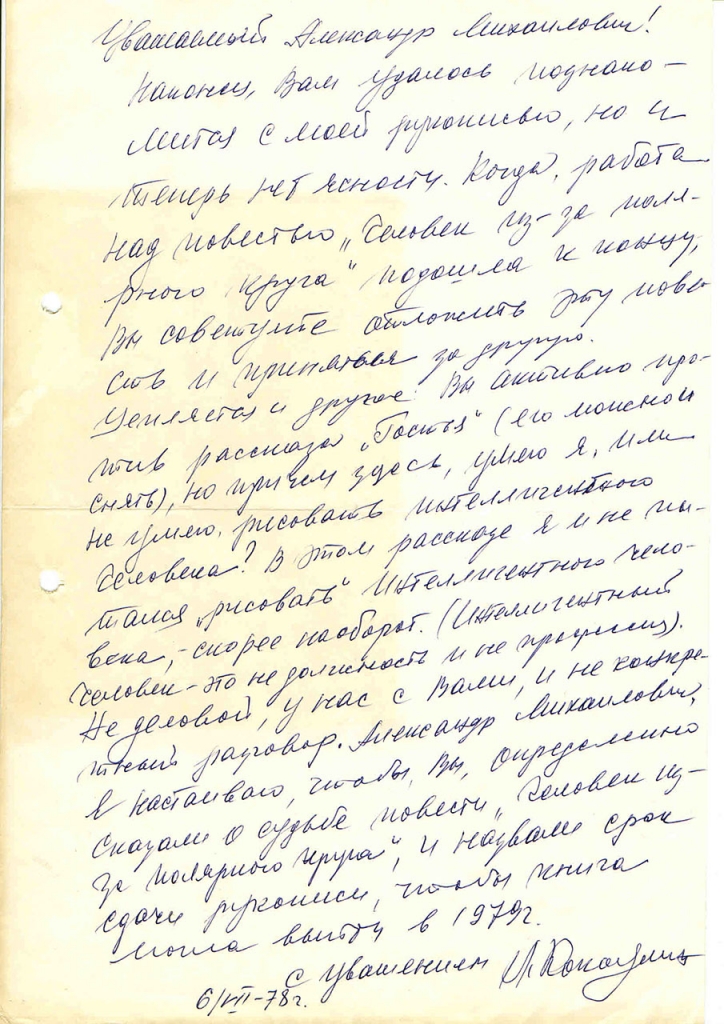 Уважаемый Александр Михайлович!
Наконец, Вам удалось познако-
мится с моей рукописью, но и
теперь нет ясности. Когда, работа
над повестью „Человек из-за поля-
рного круга" подошла к концу,
Вы советуете отложить эту пове-
сть и приняться за другую.
и другое: Вы активно про-
тив рассказа „Гостья" (его можно и
снять), но причем здесь, умею я, или
не умею, рисовать интеллигентного
человека? В этом рассказе я и не пы-
тался „рисовать" интеллигентного чело-
века, - скорее наоборот. (Интеллигентный
человек - это не должность и не профессия).
Не деловой, у нас с Вами, и не конкре-
тный разговор. Александр Михайлович,
я настаиваю, чтобы, Вы, определенно
сказали о судьбе повести „Человек из-
за полярного круга", и назвали срок
сдачи рукописи, чтобы книга
могла выйти в 1979г.
с уважением
6/VII-78г.